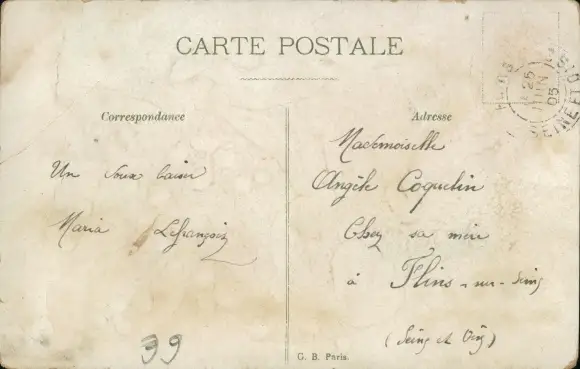 CARTE POSTALE
Correspondance
Adresse
Un doux baiser
Maria Lefrançois
Mademoiselle
Angèle Coquelin
Chez sa mère
à Flins-sur-Seine
(Seine et Oise)
25
JUIN
05
SEINE ET
39
G. B. Paris.